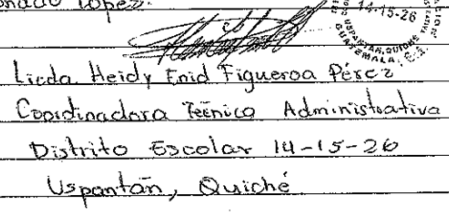 López.
14-15-26
USPANTÁN, QUICHÉ
GUATEMALA, C.A.
Licda. Heidy Enid Figueroa Pérez
Coordinadora Técnico Administrativa
Distrito Escolar 14-15-26
Uspantán, Quiché